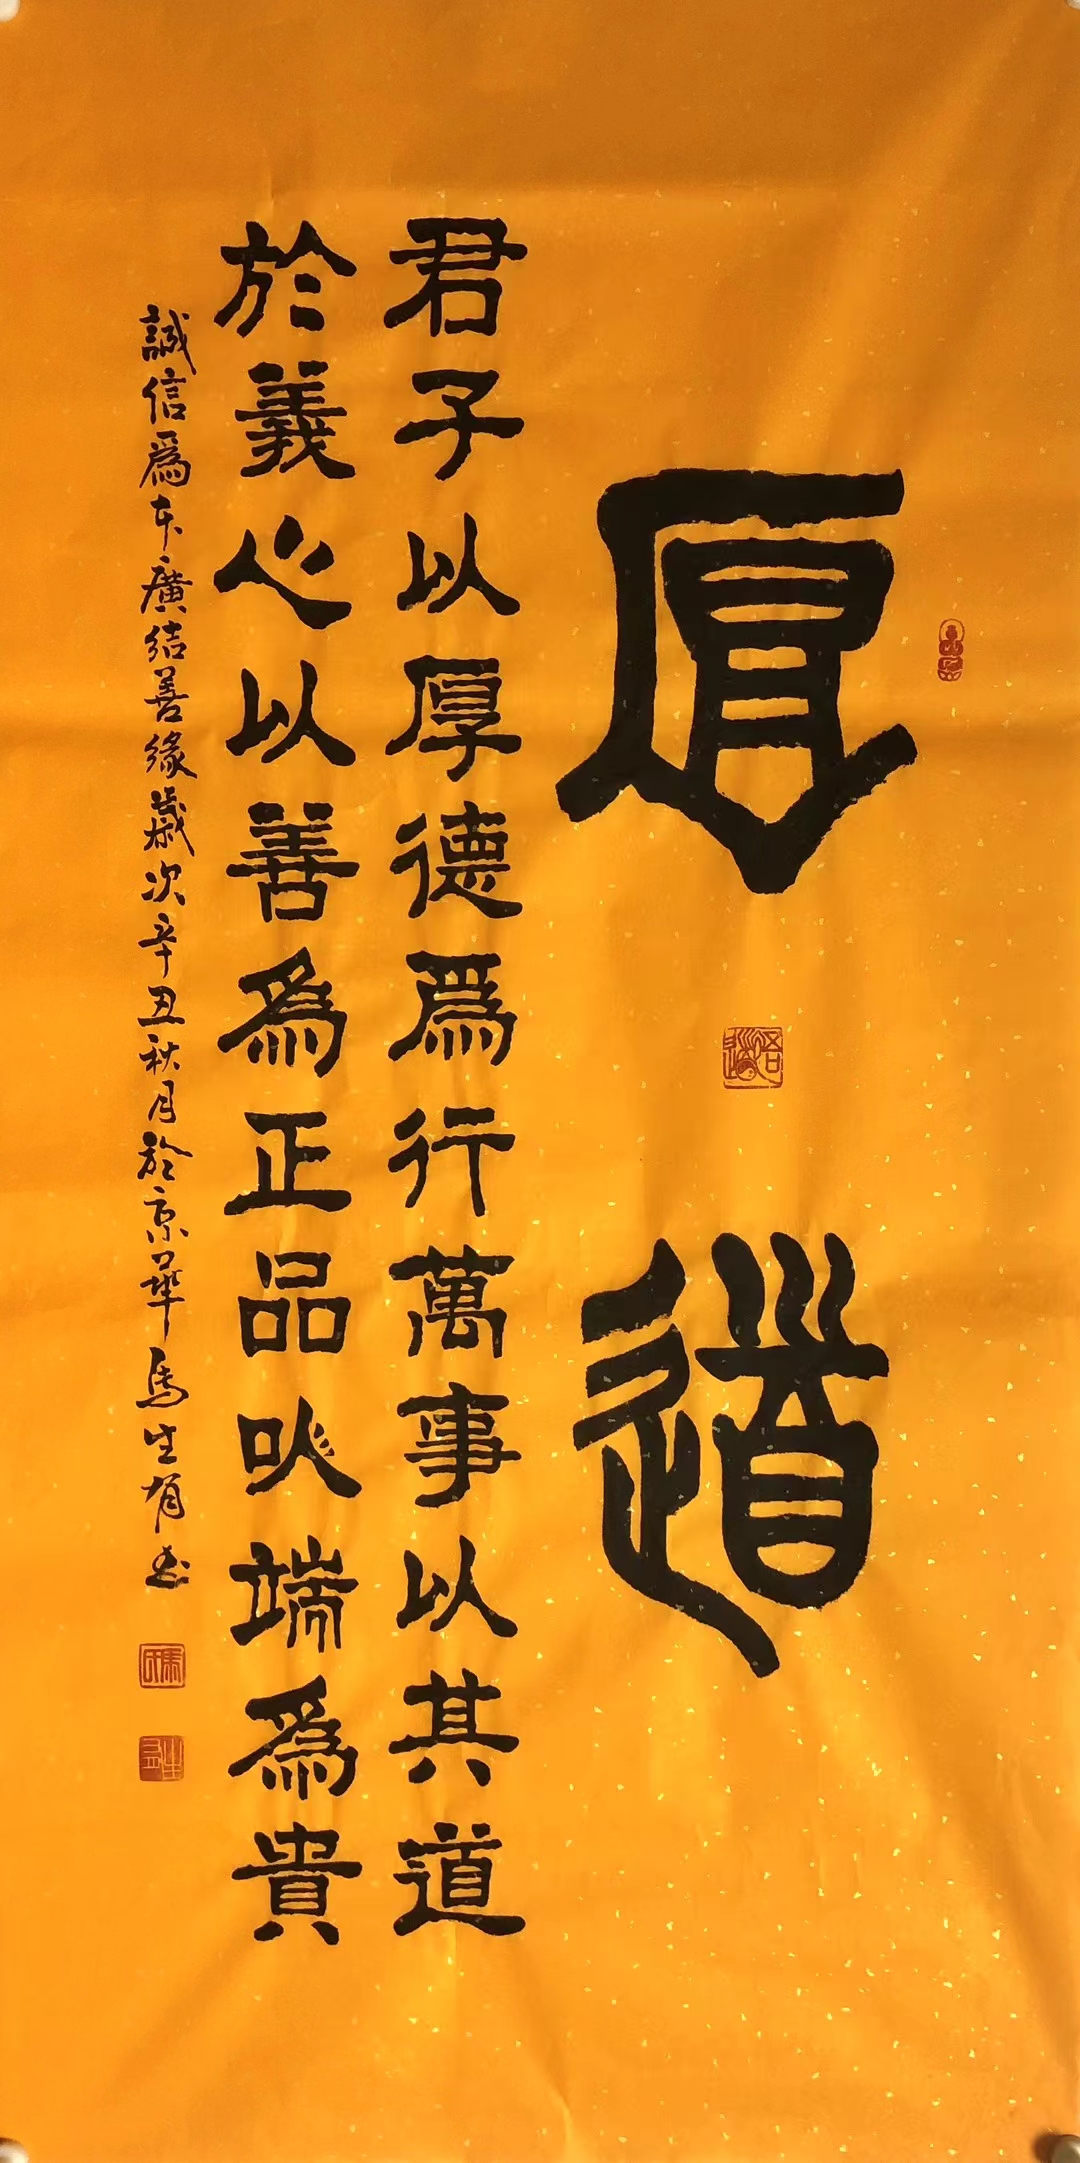 厚道
君子以厚德爲行萬事以其道
於義心以善為正品㕥端為貴
誠信爲本廣結善緣歲次辛丑秋月於京華馬生書
馬氏